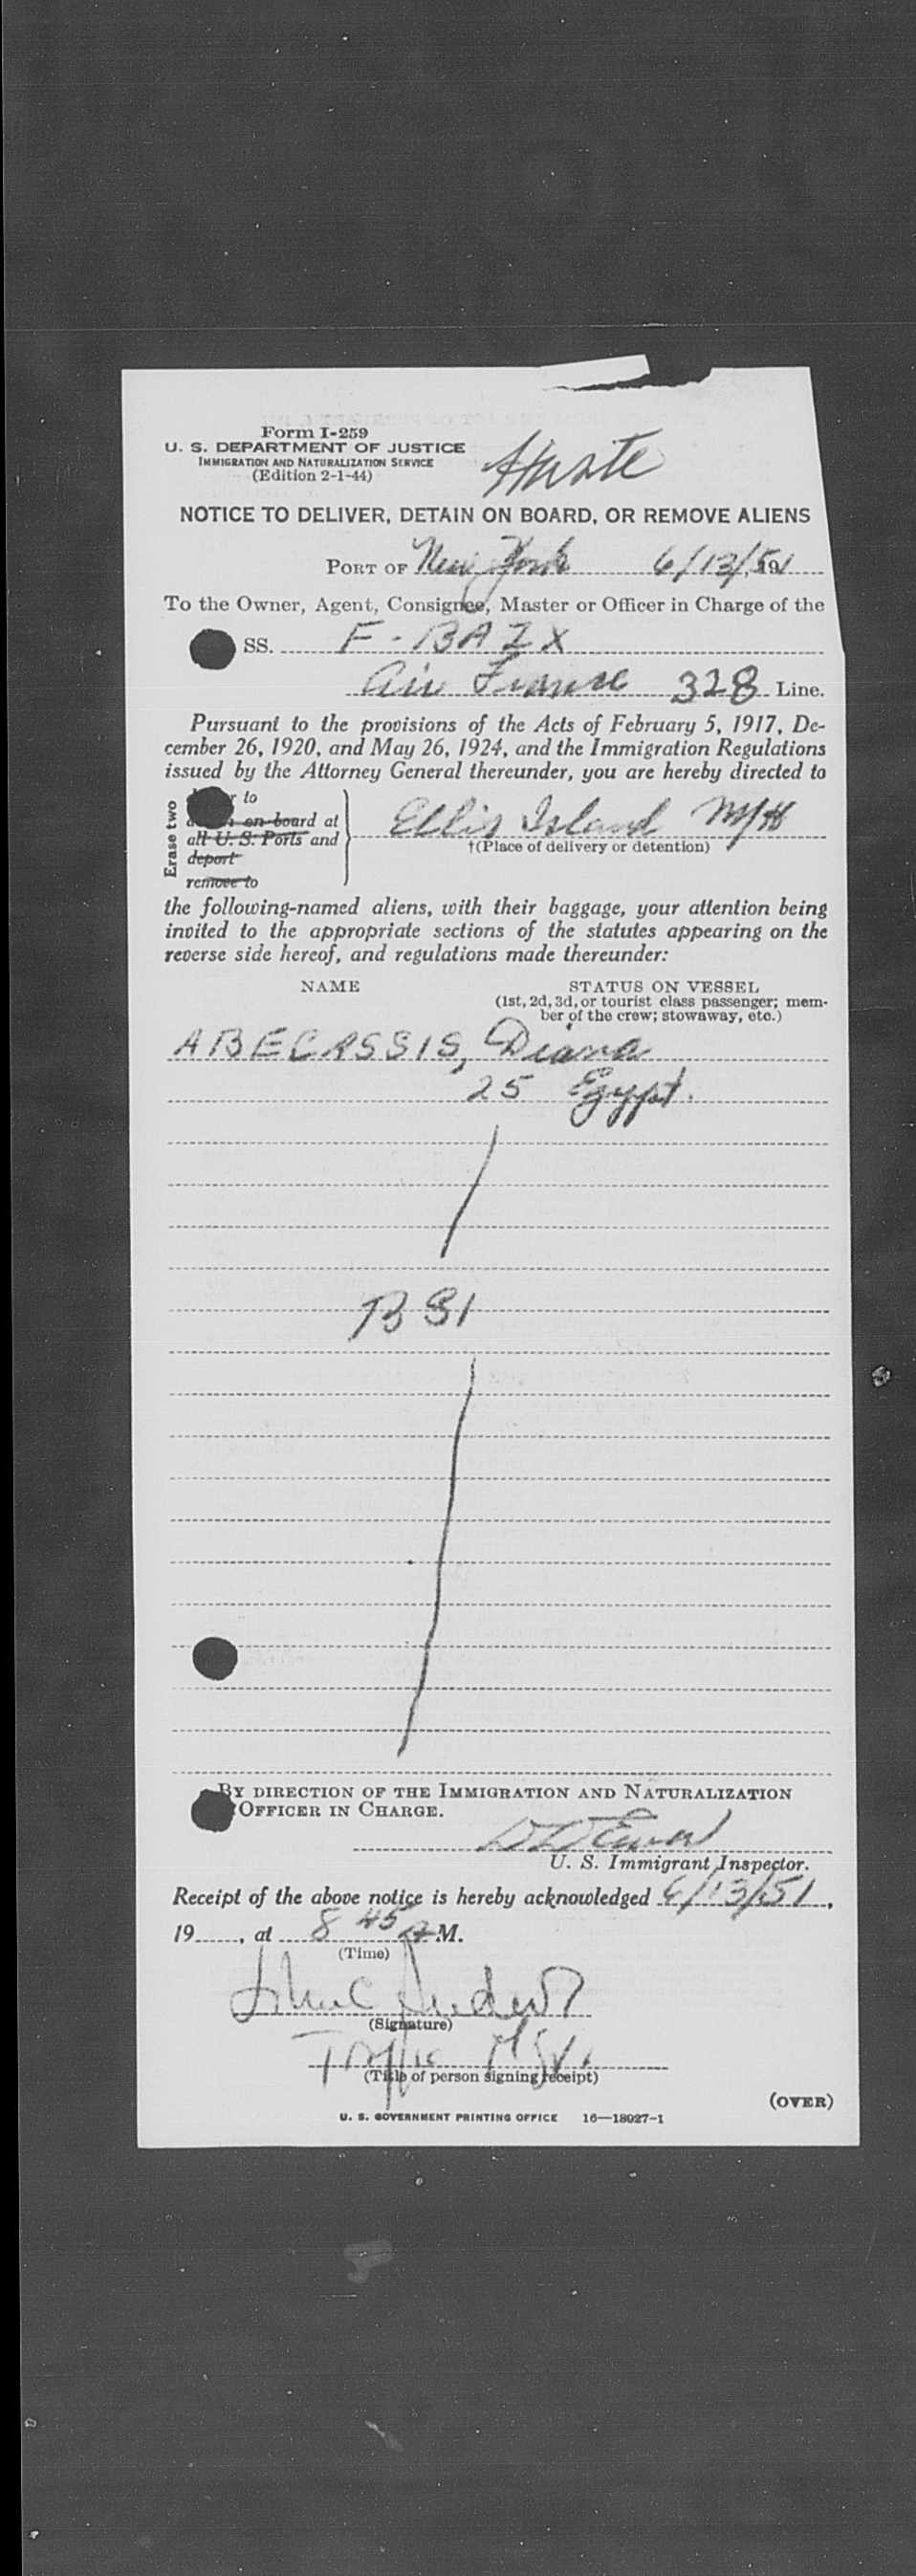 Form I-259
U. S. DEPARTMENT OF JUSTICE
IMMIGRATION AND NATURALIZATION SERVICE
(Edition 2-1-44)
NOTICE TO DELIVER, DETAIN ON BOARD, OR REMOVE ALIENS
PORT OF New York 6/13/51, 19
To the Owner, Agent, Consignee, Master or Officer in Charge of the
SS. F-BAZX
Air France 328 Line.
Pursuant to the provisions of the Acts of February 5, 1917, De-
cember 26, 1920, and May 26, 1924, and the Immigration Regulations
issued by the Attorney General thereunder, you are hereby directed to
Erase two
to
on board at
all U. S. Ports and
deport
remove to
Ellis Island
†(Place of delivery or detention)
the following-named aliens, with their baggage, your attention being
invited to the appropriate sections of the statutes appearing on the
reverse side hereof, and regulations made thereunder:
NAME STATUS ON VESSEL
(1st, 2d, 3d, or tourist class passenger; mem-
ber of the crew; stowaway, etc.)
ABECASSIS, Diana
25 Egypt.
BSI
BY DIRECTION OF THE IMMIGRATION AND NATURALIZATION
OFFICER IN CHARGE.
U. S. Immigrant Inspector.
Receipt of the above notice is hereby acknowledged 6/13/51,
19, at 8 45 A M.
(Time)
(Signature)
Traffic Mgr.
(Title of person signing receipt)
(OVER)
U. S. GOVERNMENT PRINTING OFFICE 16—18027-1